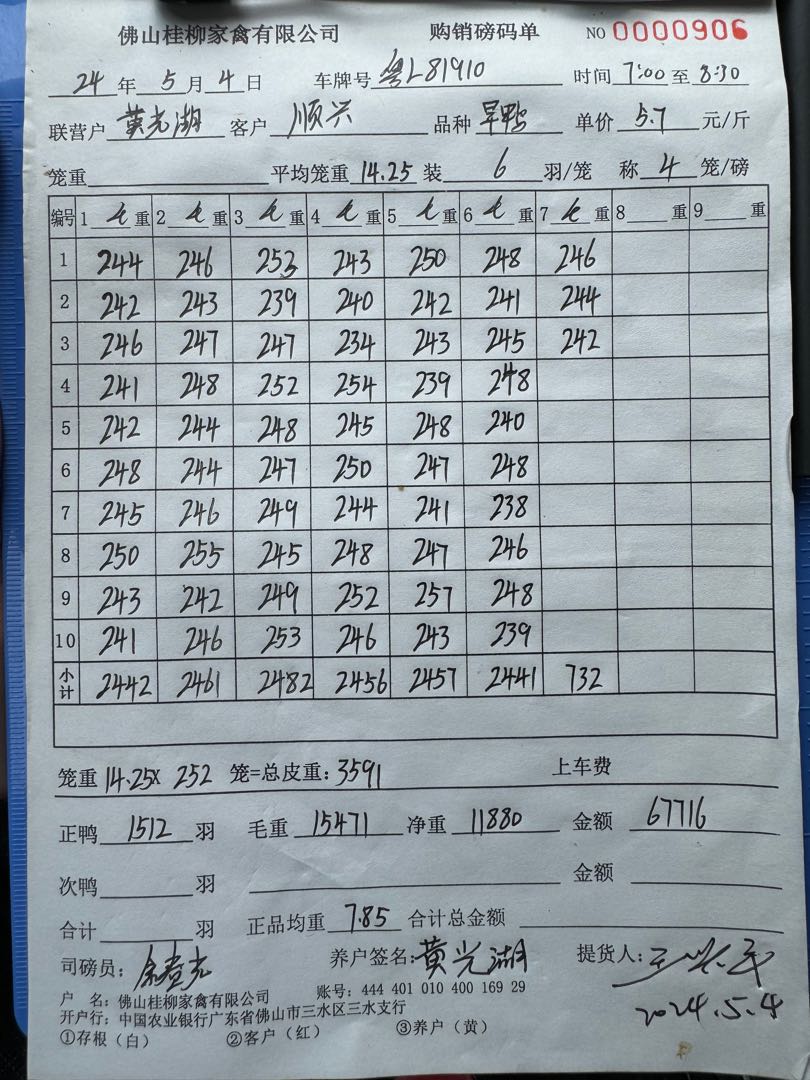 佛山桂柳家禽有限公司 购销磅码单 NO 0000906
24 年 5 月 4 日 车牌号 粤L81910 时间 7:00 至 8:30
联营户 黄光湖 客户 顺兴 品种 旱鸭 单价 5.7 元/斤
笼重 平均笼重 14.25 装 6 羽/笼 称 4 笼/磅
编号 1 毛 重 2 毛 重 3 毛 重 4 毛 重 5 毛 重 6 毛 重 7 毛 重 8 重 9 重
1 244 246 253 243 250 248 246
2 242 243 239 240 242 241 244
3 246 247 247 234 243 245 242
4 241 248 252 254 239 248
5 242 244 248 245 248 240
6 248 244 247 250 247 248
7 245 246 249 244 241 238
8 250 255 245 248 247 246
9 243 242 249 252 257 248
10 241 246 253 246 243 239
小计 2442 2461 2482 2456 2457 2441 732
笼重 14.25 x 252 笼=总皮重: 3591 上车费
正鸭 1512 羽 毛重 15471 净重 11880 金额 67716
次鸭 羽 金额
合计 羽 正品均重 7.85 合计总金额
司磅员: 养户签名: 黄光湖 提货人:
2024.5.4
户 名: 佛山桂柳家禽有限公司 账号: 444 401 010 400 169 29
开户行: 中国农业银行广东省佛山市三水区三水支行
①存根(白) ②客户(红) ③养户(黄)